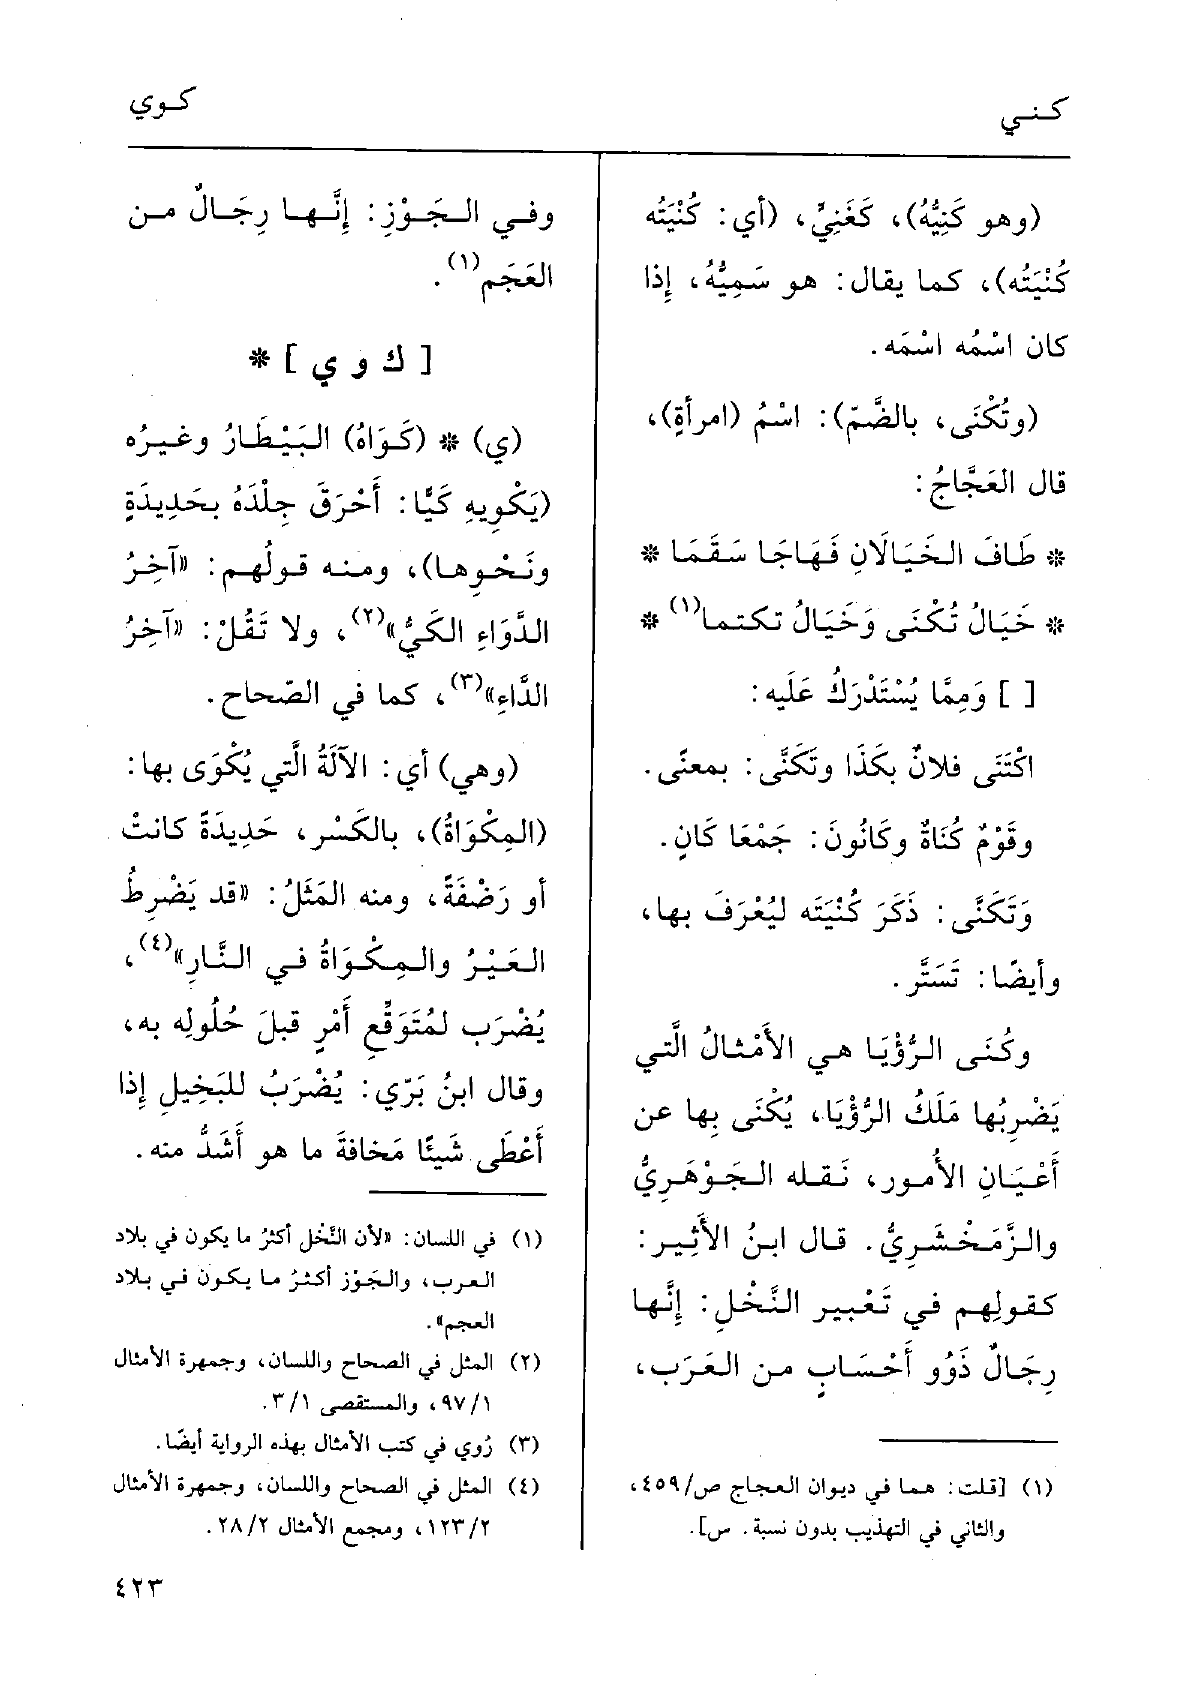 كـنـي
كـوي
(وهو كَنِيُّهُ)، كَغَنِيٍّ، (أي: كُنْيَتُه
كُنْيَتُه)، كـمـا يـقـال: هـو سَـمِيُّهُ، إِذا
كان اسْمُه اسْمَه.
(وتُكْنَى، بالضَّمّ): اسْمُ (امرأةٍ)،
قال العَجَّاجُ:
* طَافَ الـخَـيَـالَانِ فَـهَـاجَـا سَـقَـمَـا *
* خَيَالُ تُكْنَى وَخَيَالُ تكتما(١) *
[ ] وَمِمَّا يُسْتَدْرَكُ عَلَيه:
اكْتَنَى فلانٌ بكَذَا وتَكَنَّى: بمعنًى.
وقَوْمٌ كُنَاةٌ وكَانُونَ: جَمْعَا كَانٍ.
وَتَكَنَّى: ذَكَرَ كُنْيَتَه لِيُعْرَفَ بها،
وأيضًا: تَسَتَّر.
وكُـنَـى الـرُّؤْيَـا هـي الأَمْـثـالُ الَّتي
يَضْرِبُها مَلَكُ الرُّؤْيَا، يُكْنَى بِها عن
أَعْـيَـانِ الأُمـور، نَـقـلـه الـجَـوْهَـرِيُّ
والزَّمَـخْـشَـرِيُّ. قـال ابـنُ الأَثِـيـر:
كـقـولِـهـم فـي تَـعْـبـيـر الـنَّـخْـلِ: إِنَّـهـا
رِجَـالٌ ذَوُو أَحْـسَـابٍ مـن الـعَـرَب،
(١) [قلت: هـمـا في ديوان العجاج ص/٤٥٩،
والثاني في التهذيب بدون نسبة. س].
وفـي الـجَـوْزِ: إِنَّـهـا رِجَـالٌ مـن
العَجَم(١).
[ ك و ي ] *
(ي) * (كَـوَاهُ) الـبَـيْـطَـارُ وغـيـرُه
(يَكْوِيهِ كَيًّا: أَحْرَقَ جِلْدَهُ بـحَدِيدَةٍ
ونَـحْـوِهـا)، ومـنـه قـولُـهـم: «آخِـرُ
الدَّوَاءِ الكَيُّ»(٢)، ولا تَقُلْ: «آخِرُ
الدَّاءِ»(٣)، كما في الصّحاح.
(وهي) أي: الآلَةُ الَّتي يُكْوَى بها:
(المِكْوَاةُ)، بالكَسْر، حَدِيدَةً كانتْ
أو رَضْفَةً، ومنه المَثَلُ: «قد يَضْرِطُ
الـعَـيْـرُ والـمِـكْـوَاةُ فـي الـنَّـارِ»(٤)،
يُضْرَب لمُتَوَقَّعِ أَمْرٍ قبلَ حُلُولِه به،
وقال ابنُ بَرّي: يُضْرَبُ للبَخِيلِ إِذا
أَعْطَى شَيئًا مَخافةَ ما هو أَشَدُّ منه.
(١) في اللسان: «لأن النَّخل أكثرُ ما يكون في بلاد
العرب، والجَوْز أكثرُ ما يكون في بلاد
العجم».
(٢) المثل في الصحاح واللسان، وجمهرة الأمثال
٩٧/١، والمستقصى ٣/١.
(٣) رُوي في كتب الأمثال بهذه الرواية أيضًا.
(٤) المثل في الصحاح واللسان، وجمهرة الأمثال
١٢٣/٢، ومجمع الأمثال ٢٨/٢.
٤٢٣